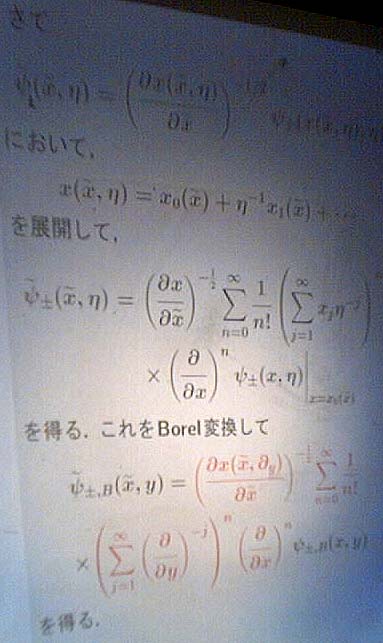 さて
\tilde{\psi}_{\pm}(\tilde{x}, \eta) = \left( \frac{\partial x(\tilde{x}, \eta)}{\partial \tilde{x}} \right)^{-1/2} \psi_{\pm}(x(\tilde{x}, \eta), \eta)
において,
x(\tilde{x}, \eta) = x_0(\tilde{x}) + \eta^{-1} x_1(\tilde{x}) + \cdots
を展開して,
\tilde{\psi}_{\pm}(\tilde{x}, \eta) = \left( \frac{\partial x}{\partial \tilde{x}} \right)^{-\frac{1}{2}} \sum_{n=0}^{\infty} \frac{1}{n!} \left( \sum_{j=1}^{\infty} x_j \eta^{-j} \right)
\times \left( \frac{\partial}{\partial x} \right)^n \psi_{\pm}(x, \eta) \Big|_{x=x_0(\tilde{x})}
を得る. これをBorel変換して
\tilde{\psi}_{\pm,B}(\tilde{x}, y) = \left( \frac{\partial x(\tilde{x}, \partial_y)}{\partial \tilde{x}} \right)^{-\frac{1}{2}} \sum_{n=0}^{\infty} \frac{1}{n!}
\times \left( \sum_{j=1}^{\infty} \left( \frac{\partial}{\partial y} \right)^{-j} \right)^n \left( \frac{\partial}{\partial x} \right)^n \psi_{\pm,B}(x, y)
を得る.